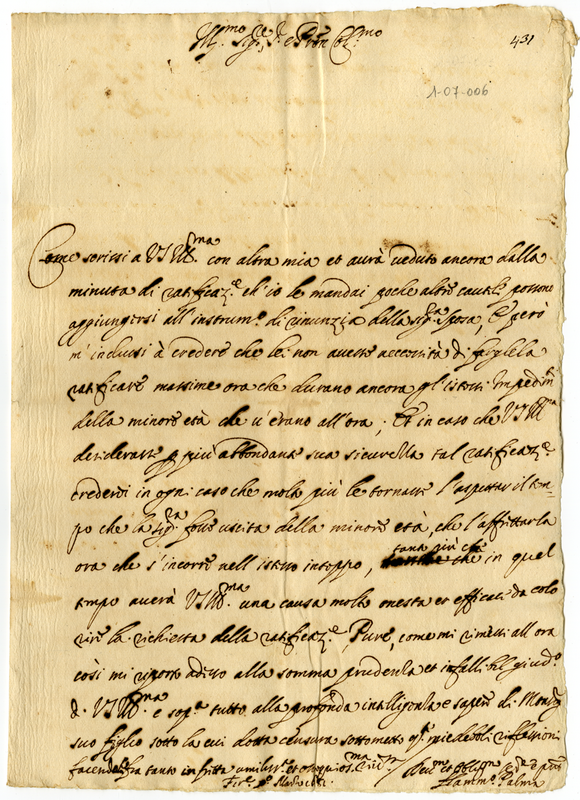 Ill.mo Sig.re Sig.r e Pron Col.mo
431
1-07-006
Come scrissi a VS Ill.ma con altra mia et aurà ueduto ancora dalla
minuta di ratificaz.e ch'io le mandai poche altre cautele possono
aggiungersi all'instrum.o di rinunzia della sig.ra sposa, E però
m'inclussi à credere che lei non auesse accessità di fargliela
ratificare massime ora che durano ancora gl'istessi Impedim.ti
della minore età che u'erano all'ora; Et in caso che VS Ill.ma
desiderasse p più abbondante sua sicurezza tal ratificaz.e
crederei in ogni caso che molto più le tornasse l'aspettar il tem-
po che la Sig.ra fosse uscita della minore età, che l'affrettarla
ora che s'incorre nell'istesso intoppo, tanto più che in quel
tempo auerà VS Ill.ma una causa molto onesta et efficace da colo
rire la richiesta della ratificaz.e, Pure, come mi rimessi all'ora
così mi riporto adesso alla somma prudenza et infallibil giud.o
di VS Ill.ma e sop.a tutto alla profonda intelligenza e sapere di Mons.r
suo figlio sotto la cui dotta censura sottometto q.te mie deboli riflessioni
facendo fra tanto infinita umiliss. et ossequios.ma river.za
Dev.mo et Oblig.mo
Fiamm.o Palma